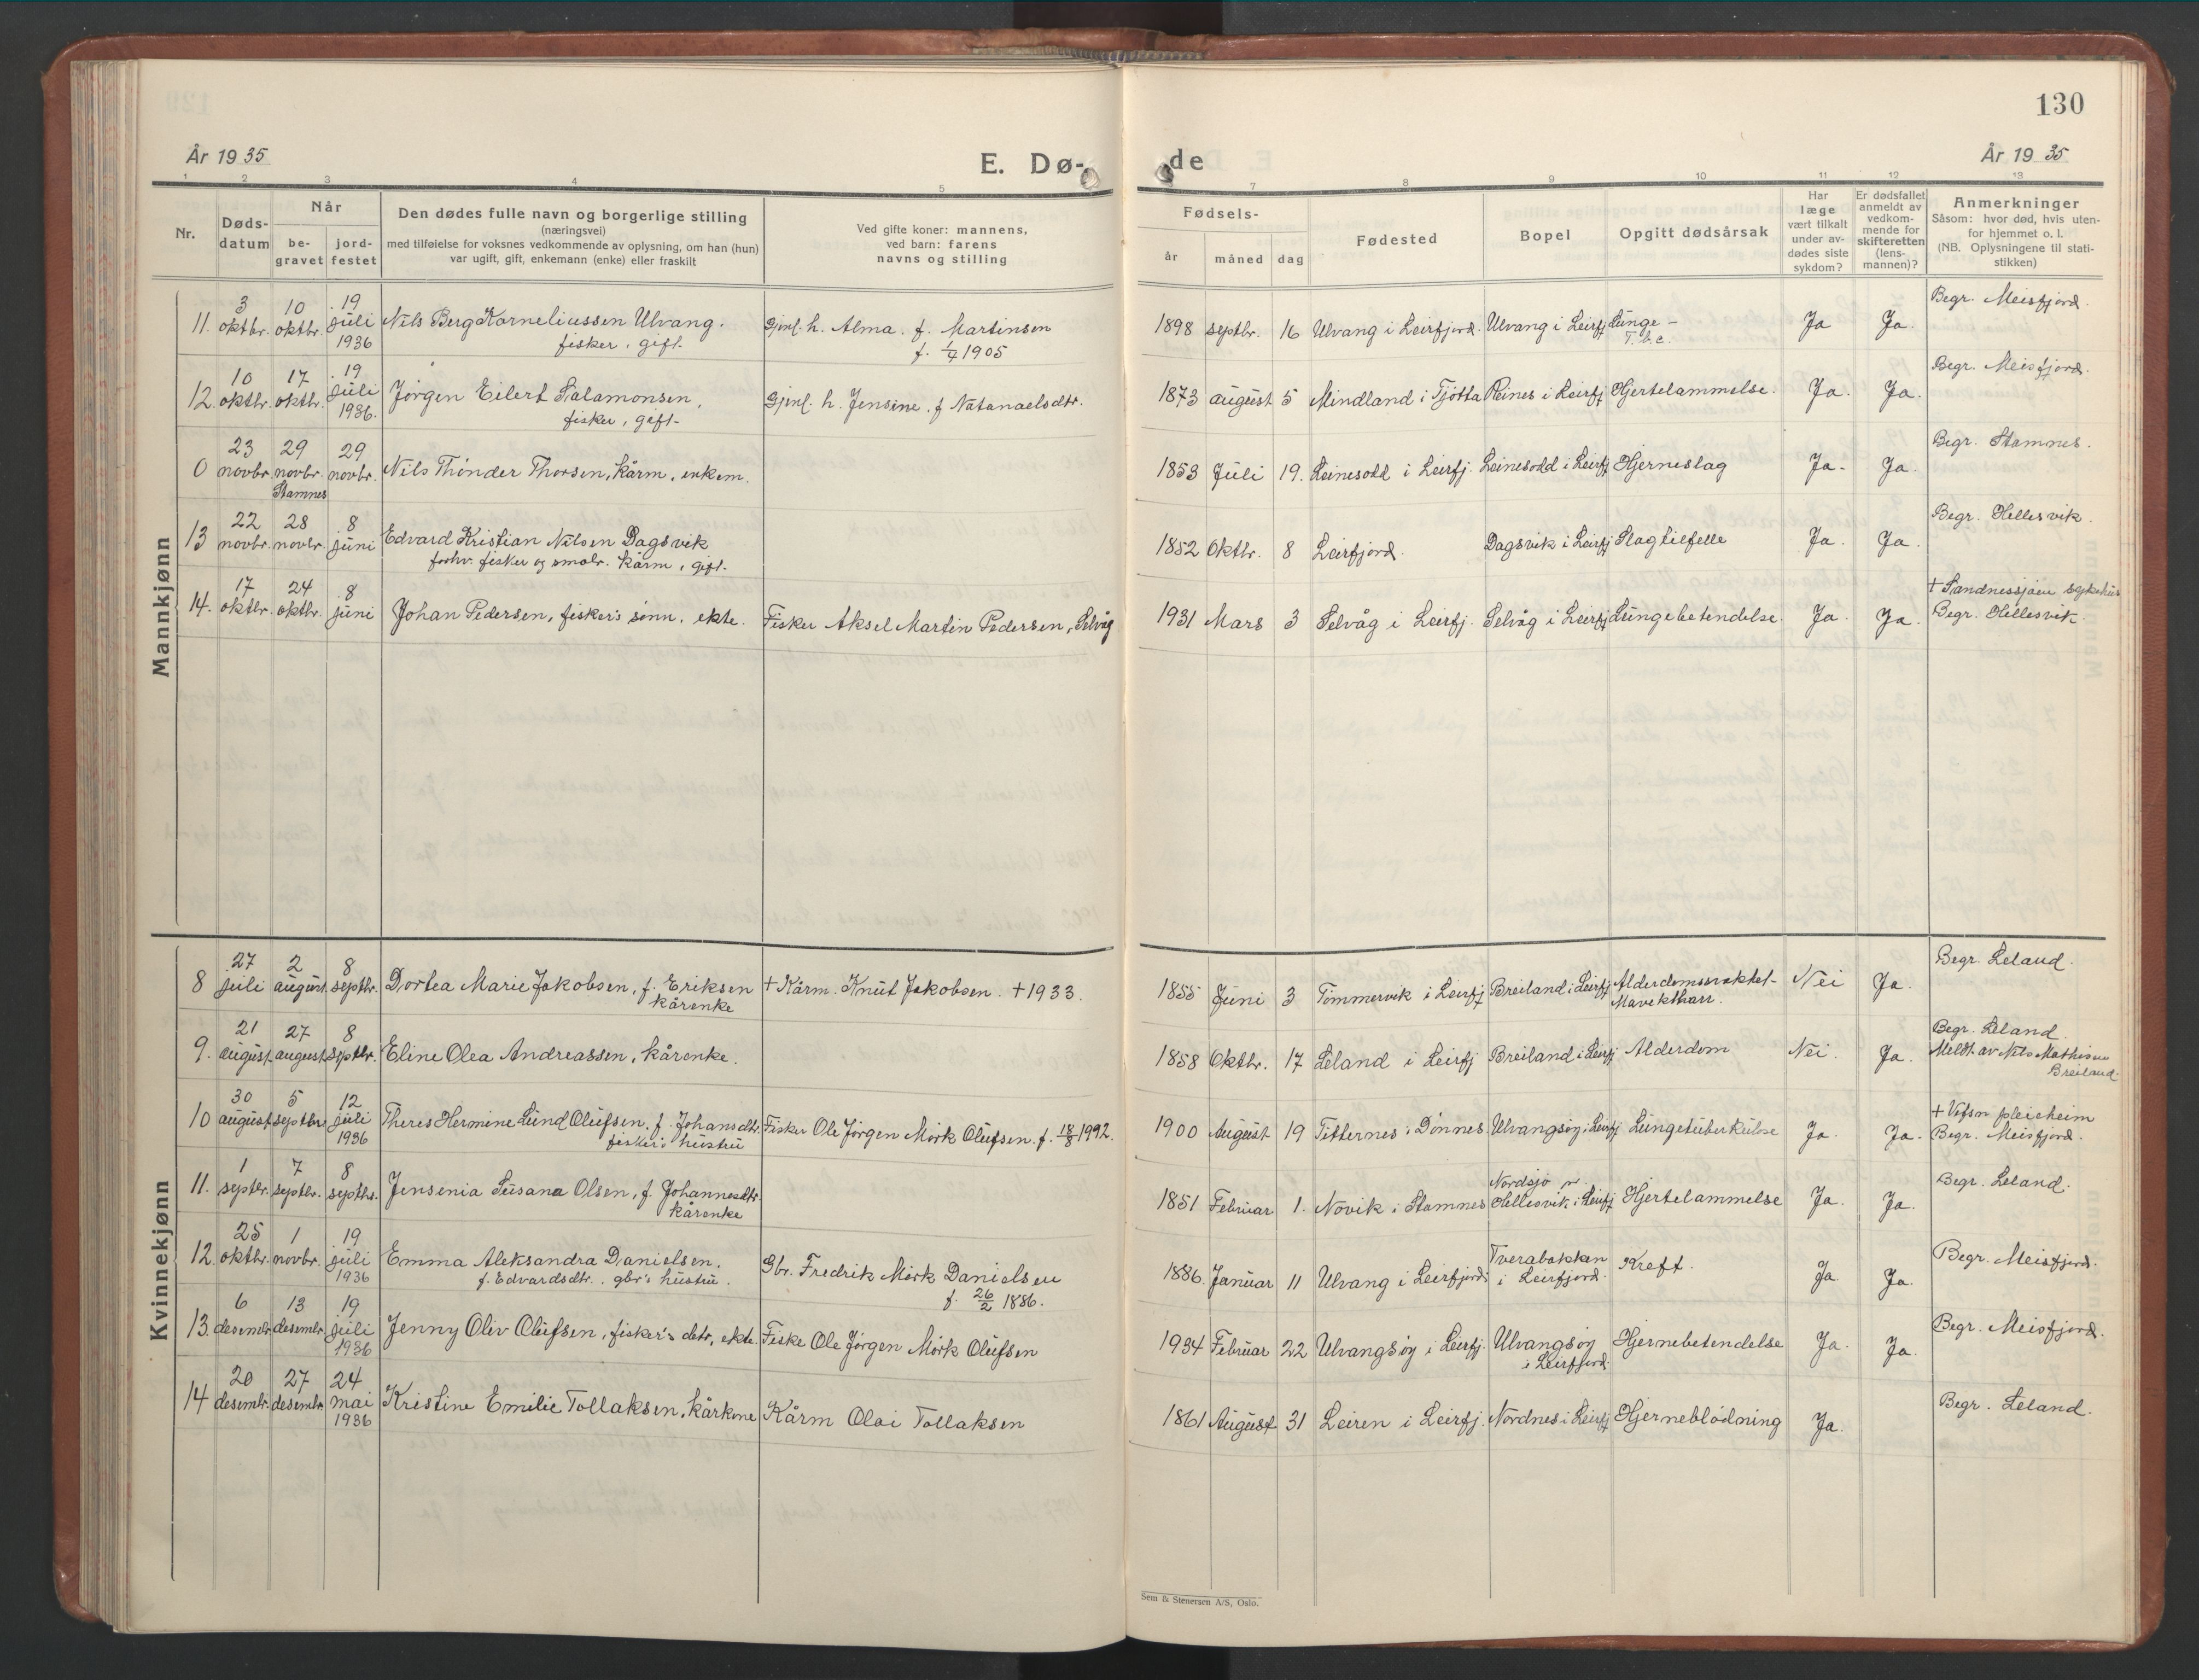 130
År 1935
E. Dø-
de
År 1935
1 2 3 4 5 7 8 9 10 11 12 13
Nr.
Døds-
datum
Når
be-
gravet
jord-
festet
Den dødes fulle navn og borgerlige stilling
(næringsvei)
med tilføielse for voksnes vedkommende av oplysning, om han (hun)
var ugift, gift, enkemann (enke) eller fraskilt
Ved gifte koner: mannens,
ved barn: farens
navns og stilling
Fødsels-
år måned dag
Fødested
Bopel
Opgitt dødsårsak
Har
læge
vært tilkalt
under av-
dødes siste
sykdom?
Er dødsfallet
anmeldt av
vedkom-
mende for
skifteretten
(lens-
mannen)?
Anmerkninger
Såsom: hvor død, hvis uten-
for hjemmet o. l.
(NB. Oplysningene til stati-
stikken)
Mannkjønn
11. 3 oktbr. 10 oktbr. 19 juli 1936 Nils Berg Korneliussen Ulvang.
fisker, gift.
Gjenl. h. Alma. f. Martinsen
f. 1/4 1905
1898 septbr. 16 Ulvang i Leirfjord. Ulvang i Leirfj Lunge-
T.b.c.
Ja Ja. Begr. Meisfjord.
12. 10 oktbr. 17 oktbr. 19 juli 1936. Jörgen Eilert Salamonsen,
fisker, gift-
Gjenl. h. Jensine. f Natanaelsdtr.
1873 august 5 Mindland i Tjötta Reines i Leirfj Hjertelammelse. Ja. Ja. Begr. Meisfjord.
0 23 novbr. 29 novbr. Stamnes 29 novbr. Nils Thönder Thorsen, kårm. enkem.
1853 Juli 19. Leinesodd i Leirfj. Leinesodd i Leirfj Hjerneslag Ja- Ja. Begr. Stamnes.
13 22 novbr. 28 novbr. 8 juni Edvard Kristian Nilsen Dagsvik
forhv. fisker og småbr. kårm, gift.
1852 Oktbr. 8 Leirfjord. Dagsvik i Leirfj Slagtilfelle Ja. Ja. Begr. Hellesvik.
14. 17 oktbr. 24 oktbr. 8 juni Johan Pedersen, fisker's sönn, ekte. Fisker Aksel Martin Pedersen, Selvåg
1931 Mars 3 Selvåg i Leirfj. Selvåg i Leirfj Lungebetendelse. Ja. Ja. + Sandnessjöen sykehus
Begr. Hellesvik.
Kvinnekjønn
8 27 juli 2 august 8 septbr. Dortea Marie Jakobsen, f. Eriksen
kårenke
+ Kårm. Knut Jakobsen. +1933.
1855 Juni 3 Tömmervik i Leirfj Breiland i Leirfj Alderdomssvakhet-
Nei Ja. Begr. Leland.
9. 21 august 27 august 8 septbr. Eline Olea Andreassen, kårenke.
1858 Oktbr. 17 Leland i Leirfj Breiland i Leirfj Alderdom Nei. Ja. Begr. Leland.
Meldt av Nils Mathisen
Breiland.
10 30 august 5 septbr. 12 juli 1936 Theres Hermine Lund Olufsen. f. Johansdtr.
fisker's hustru
Fisker Ole Jörgen Mörk Olufsen. f. 18/8 1992.
1900 August 19 Titternes i Dönnes Ulvangsöy i Leirfj Lungetuberkulose Ja. Ja. + Vefsn pleieheim
Begr. Meisfjord.
11. 1 septbr. 7 septbr. 8 septbr. Jensenia Susana Olsen, f. Johannesdtr.
kårenke
1851 Februar 1. Növik i Stamnes Nordsjö
Hellesvik i Leirfj Hjertelammelse Ja. Ja. Begr. Leland.
12. 25 oktbr. 1 novbr. 19 juli 1936 Emma Aleksandra Danielsen.
f. Edvardsdtr. gbr's hustru.
Gbr. Fredrik Mörk Danielsen
f. 26/2 1886.
1886. Januar 11 Ulvang i Leirfjord Tverabakkan
i Leirfjord. Kreft. Ja Ja. Begr. Meisfjord.
13. 6 desembr. 13 desembr. 19 juli 1936 Jenny Oliv Olufsen, fisker's dtr, ekte. Fiske Ole Jörgen Mörk Olufsen
1934 Februar 22 Ulvangsöy i Leirfj. Ulvangsöy
i Leirfjord. Hjernebetendelse Ja. Ja. Begr. Meisfjord.
14 20 desembr. 27 desembr. 24 mai 1936 Kristine Emilie Tollaksen, kårkone Kårm Oloi Tollaksen
1861 August 31 Leiren i Leirfj. Nordnes i Leirfj Hjerneblödning Ja. Begr. Leland.
Sem & Stenersen A/S, Oslo.